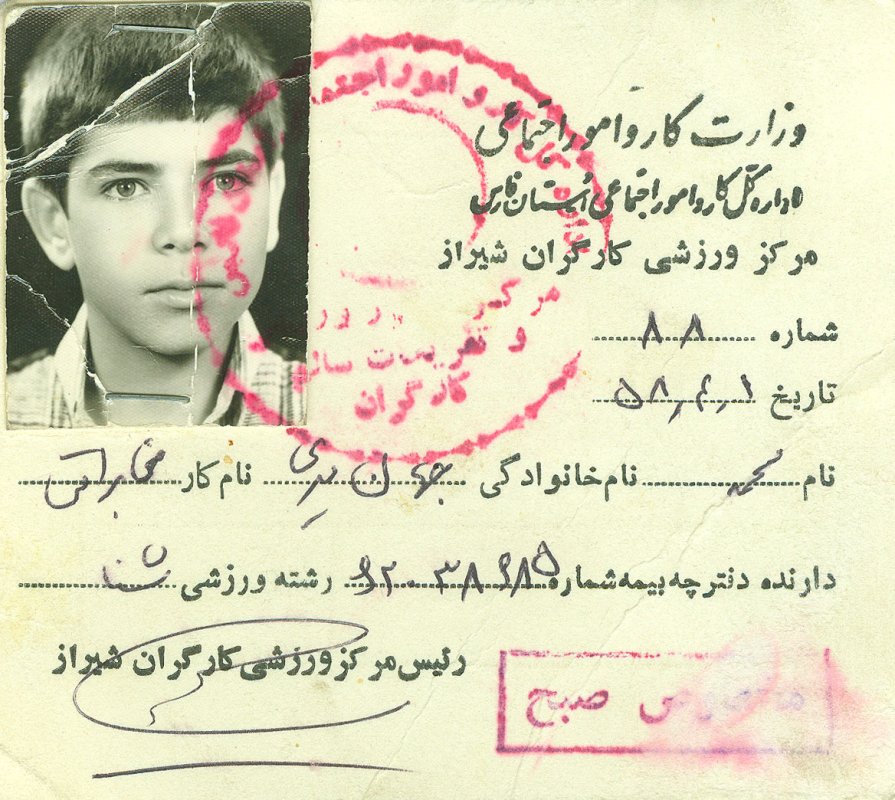 وزارت کار و امور اجتماعی
اداره کل کار و امور اجتماعی استان فارس
مرکز ورزشی کارگران شیراز
شماره ۸۸
تاریخ ۵۸٫۴٫۱
نام محمد نام خانوادگی جهان دیدی نام کار مخابرات
دارنده دفترچه بیمه شماره رشته ورزشی شنا
رئیس مرکز ورزشی کارگران شیراز
و امور اجتما
مرکز
و تفریحات سالم
کارگران
مخصوص صبح